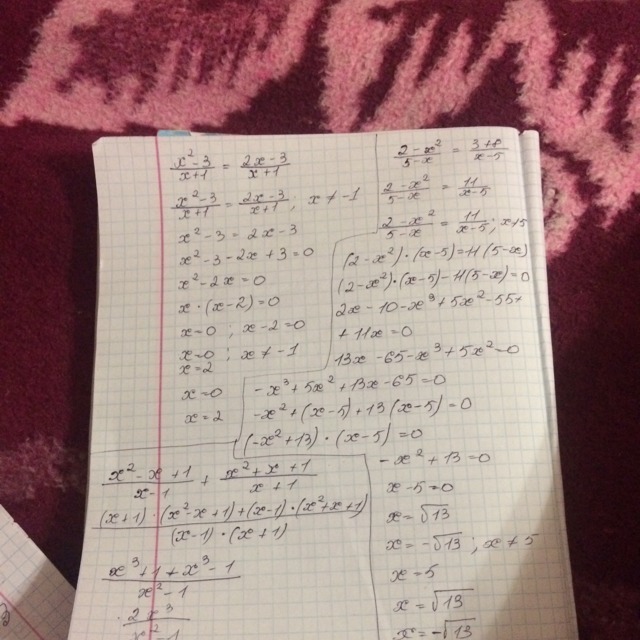 x²-3/x+1 = 2x-3/x+1
x²-3/x+1 = 2x-3/x+1 ; x ≠ -1
x²-3 = 2x-3
x²-3-2x+3=0
x²-2x=0
x·(x-2)=0
x=0 ; x-2=0
x=0 ; x≠-1
x=2
x=0
x=2
2-x²/5-x = 3+8/x-5
2-x²/5-x = 11/x-5
2-x²/5-x = 11/x-5 ; x≠5
(2-x²)·(x-5)=11(5-x)
(2-x²)·(x-5)-11(5-x)=0
2x-10-x³+5x²-55+
+11x=0
13x-65-x³+5x²=0
-x³+5x²+13x-65=0
-x²+(x-5)+13(x-5)=0
(-x²+13)·(x-5)=0
-x²+13=0
x-5=0
x=√13
x=-√13 ; x≠5
x=5
x=√13
x=-√13
x²-x+1/x-1 + x²+x+1/x+1
(x+1)·(x²-x+1)+(x-1)·(x²+x+1)/(x-1)·(x+1)
x³+1+x³-1/x²-1
2x³/x²-1